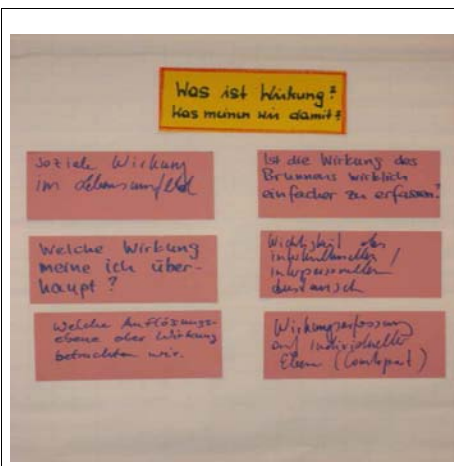 Was ist Wirkung?
Was meinen wir damit?
soziale Wirkung
im Lebensumfeld
Ist die Wirkung des
Brunnens wirklich
einfacher zu erfassen?
Welche Wirkung
meine ich über-
haupt?
Wichtigkeit des
interkulturellen /
interpersonellen
Austausch
Welche Auflösungs-
ebene der Wirkung
betrachten wir.
Wirkungserfassung
auf individueller
Ebene (Counterpart)